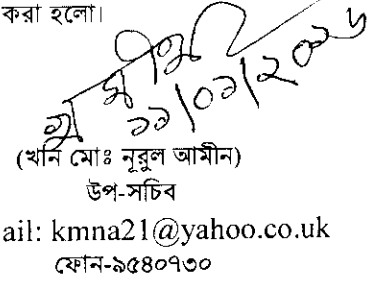 করা হলো।
১১/০১/২০১৬
(খনি মোঃ নূরুল আমীন)
উপ-সচিব
ail: kmna21@yahoo.co.uk
ফোন-৯৫৪০৭৩০